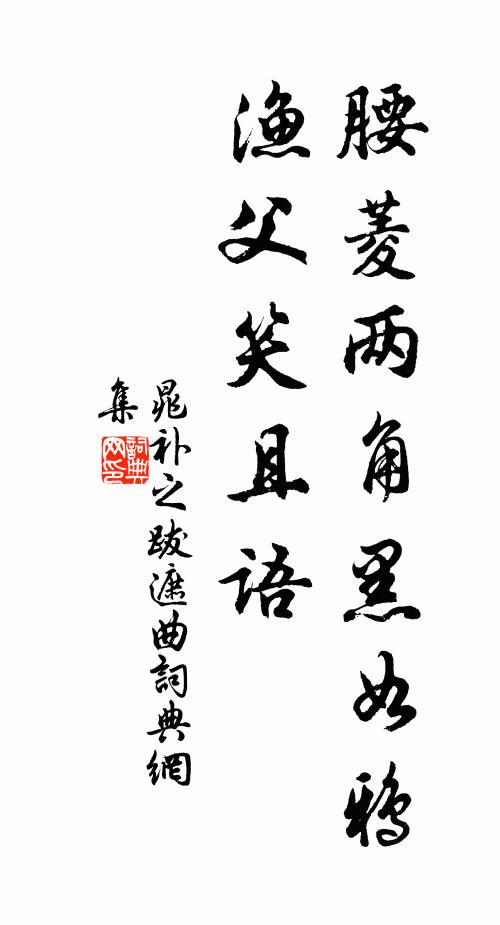 腰菱两角黑如鸦
渔父笑且语
晁补之跋遮曲詞典網
集
詞典
网印